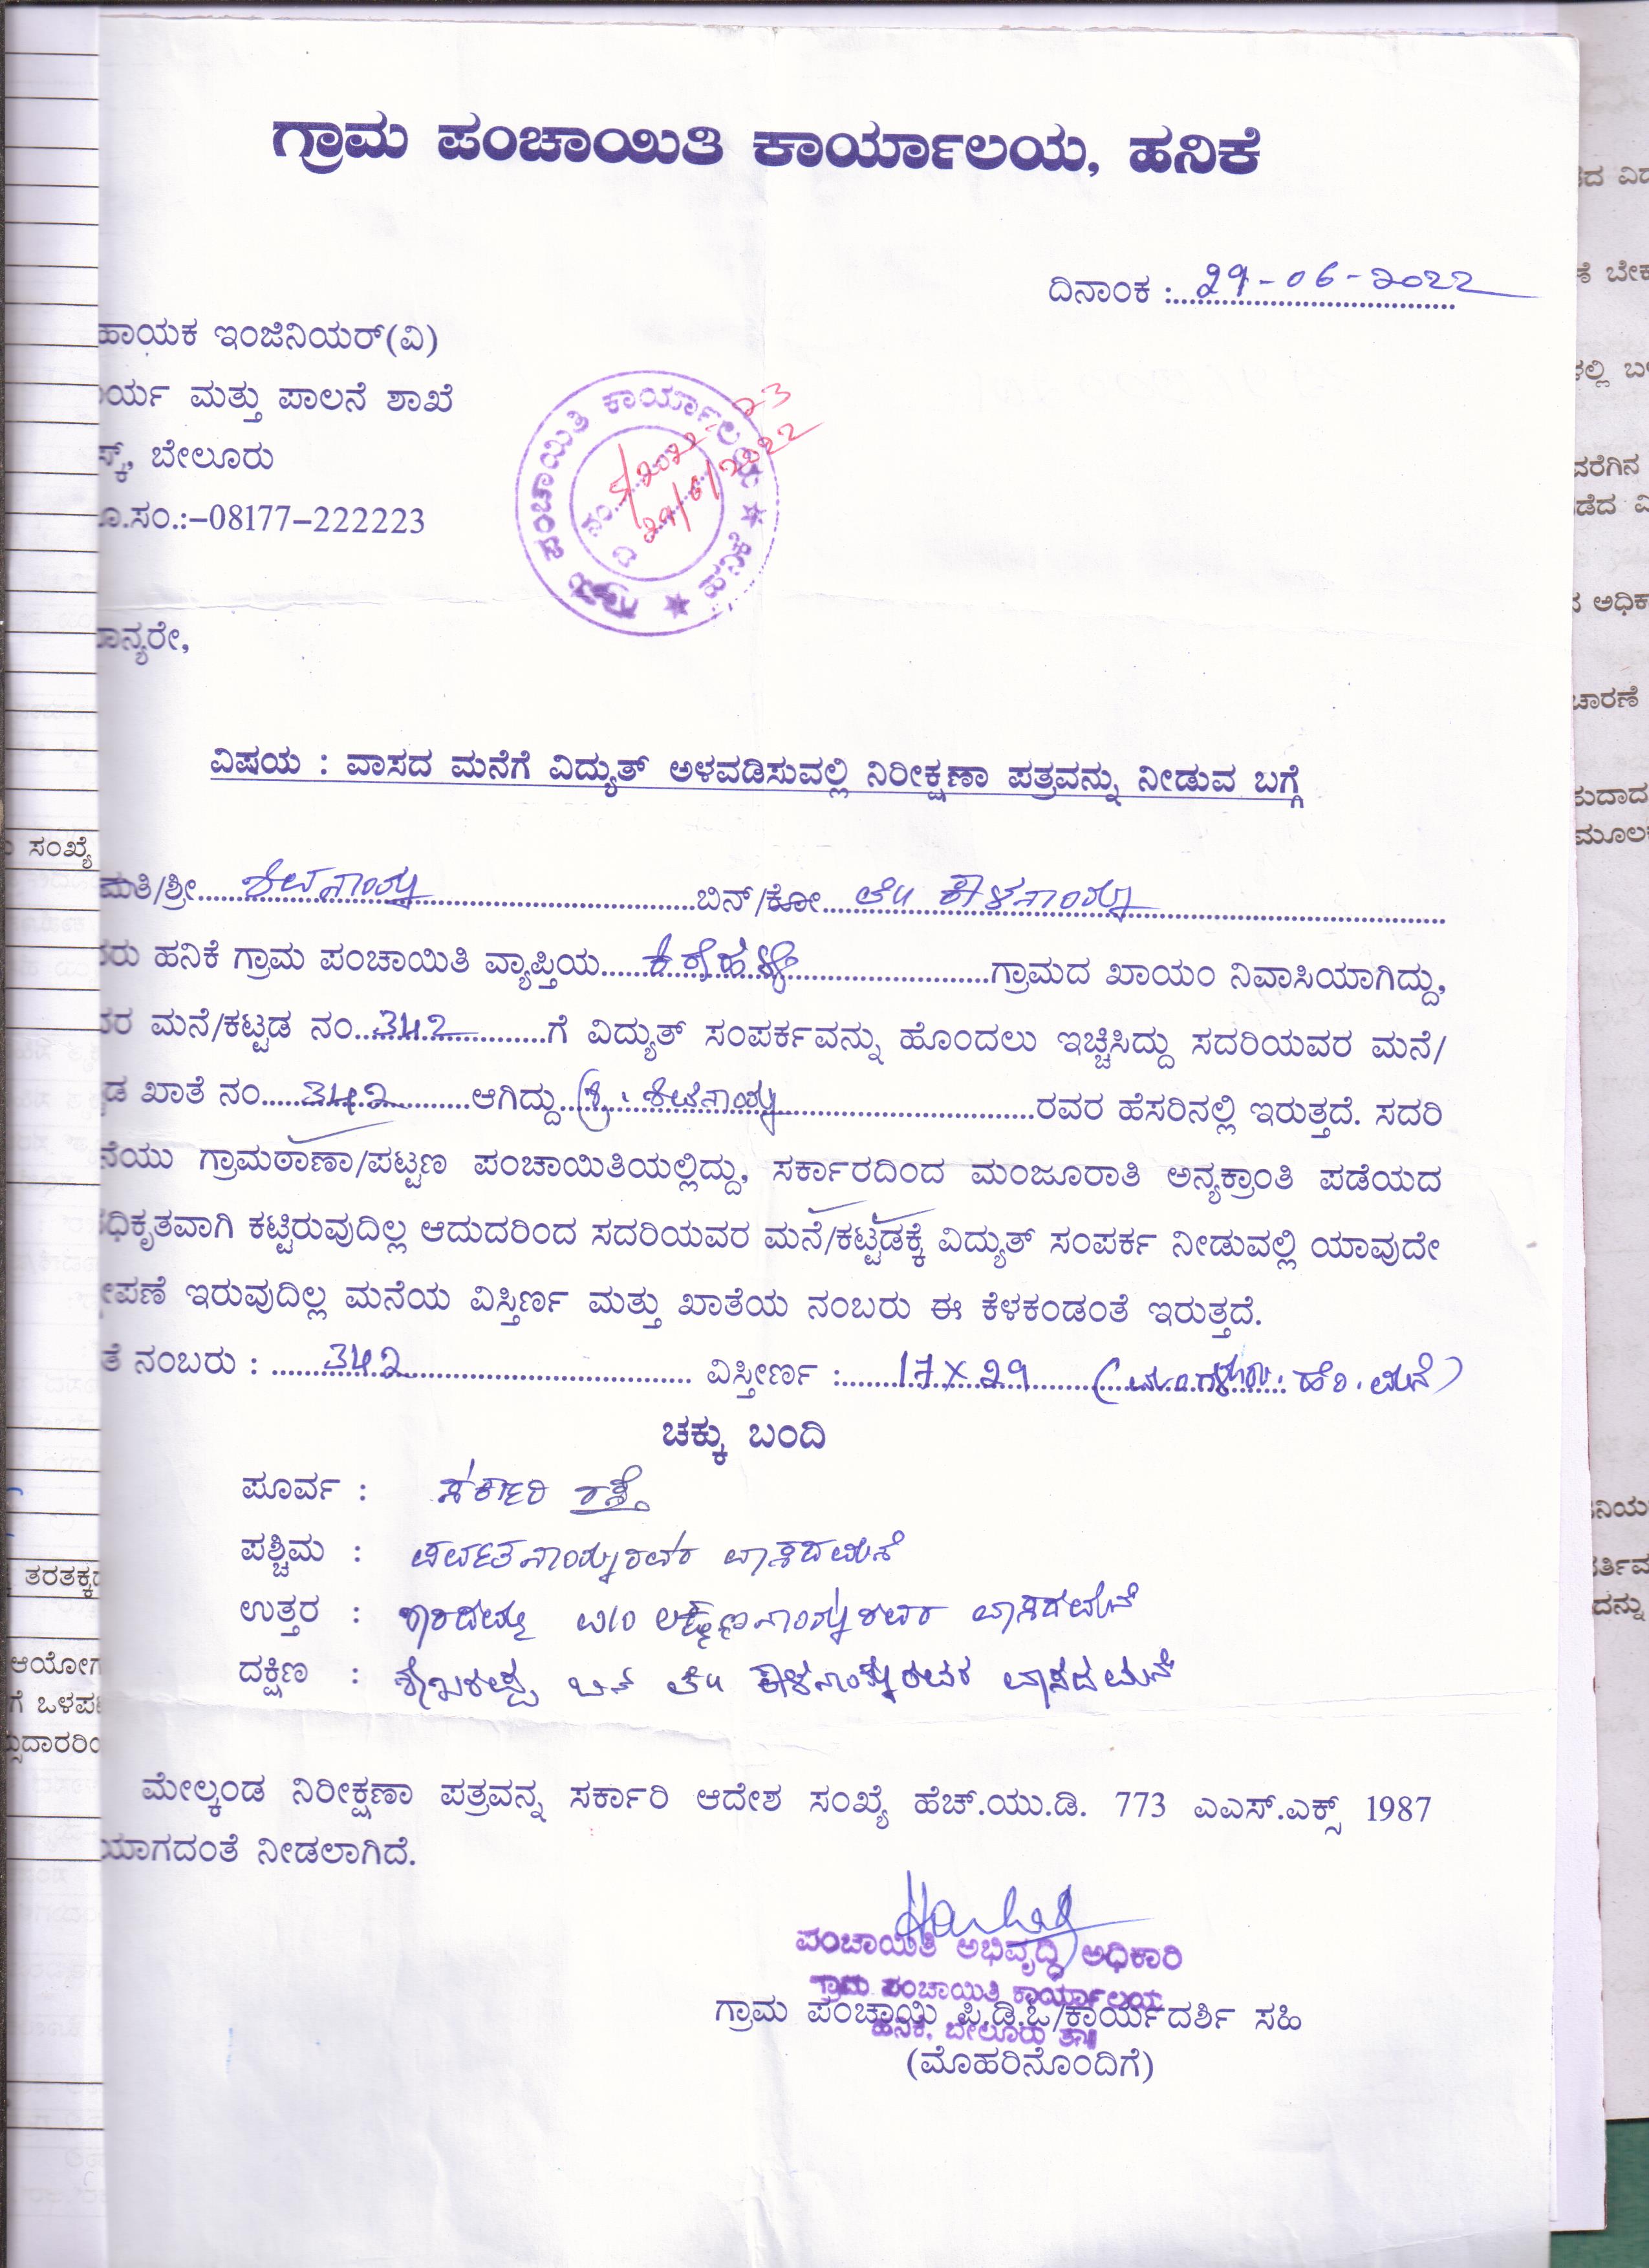 ಗ್ರಾಮ ಪಂಚಾಯಿತಿ ಕಾರ್ಯಾಲಯ, ಹನಿಕೆ
ದಿನಾಂಕ : 29-06-2022
ಹಾಯಕ ಇಂಜಿನಿಯರ್(ವಿ)
ರ್ಯ ಮತ್ತು ಪಾಲನೆ ಶಾಖೆ
ಸ್ಕ್, ಬೇಲೂರು
ಸಂ.:-08177-222223
ಗ್ರಾಮ ಪಂಚಾಯಿತಿ ಕಾರ್ಯಾಲಯ ★ ಹನಿಕೆ ★
ನಂ. 5/2022-23
ದಿ 29/6/2022
ಾನ್ಯರೇ,
ವಿಷಯ : ವಾಸದ ಮನೆಗೆ ವಿದ್ಯುತ್ ಅಳವಡಿಸುವಲ್ಲಿ ನಿರೀಕ್ಷಣಾ ಪತ್ರವನ್ನು ನೀಡುವ ಬಗ್ಗೆ
ಮತಿ/ಶ್ರೀ ಬಿನ್/ಕೋ ಲೇ॥ ಕಾಳನಾಯ್ಕ
ರು ಹನಿಕೆ ಗ್ರಾಮ ಪಂಚಾಯಿತಿ ವ್ಯಾಪ್ತಿಯ ಗ್ರಾಮದ ಖಾಯಂ ನಿವಾಸಿಯಾಗಿದ್ದು,
ರ ಮನೆ/ಕಟ್ಟಡ ನಂ. 342 ಗೆ ವಿದ್ಯುತ್ ಸಂಪರ್ಕವನ್ನು ಹೊಂದಲು ಇಚ್ಚಿಸಿದ್ದು ಸದರಿಯವರ ಮನೆ/
ಡ ಖಾತೆ ನಂ. 342 ಆಗಿದ್ದು ಶ್ರೀ. ರವರ ಹೆಸರಿನಲ್ಲಿ ಇರುತ್ತದೆ. ಸದರಿ
ನೆಯು ಗ್ರಾಮಠಾಣಾ/ಪಟ್ಟಣ ಪಂಚಾಯಿತಿಯಲ್ಲಿದ್ದು, ಸರ್ಕಾರದಿಂದ ಮಂಜೂರಾತಿ ಅನ್ಯಕ್ರಾಂತಿ ಪಡೆಯದ
ಧಿಕೃತವಾಗಿ ಕಟ್ಟಿರುವುದಿಲ್ಲ ಆದುದರಿಂದ ಸದರಿಯವರ ಮನೆ/ಕಟ್ಟಡಕ್ಕೆ ವಿದ್ಯುತ್ ಸಂಪರ್ಕ ನೀಡುವಲ್ಲಿ ಯಾವುದೇ
ೇಪಣೆ ಇರುವುದಿಲ್ಲ ಮನೆಯ ವಿಸ್ತಿರ್ಣ ಮತ್ತು ಖಾತೆಯ ನಂಬರು ಈ ಕೆಳಕಂಡಂತೆ ಇರುತ್ತದೆ.
ತೆ ನಂಬರು : 342 ವಿಸ್ತೀರ್ಣ : 17 x 29 (ಮಂಗಳೂರು ಹೆಂ. ಮನೆ)
ಚಕ್ಕು ಬಂದಿ
ಪೂರ್ವ : ಸರ್ಕಾರಿ ರಸ್ತೆ
ಪಶ್ಚಿಮ : ಪರ್ವತನಾಯ್ಕರವರ ವಾಸದಮನೆ
ಉತ್ತರ : ಶಾರದಮ್ಮ w/o ಲಕ್ಷ್ಮಣನಾಯ್ಕರವರ ವಾಸದಮನೆ
ದಕ್ಷಿಣ : ಶೇಖರಪ್ಪ ಬಿನ್ ಲೇ॥ ಕಾಳನಾಯ್ಕರವರ ವಾಸದ ಮನೆ
ಮೇಲ್ಕಂಡ ನಿರೀಕ್ಷಣಾ ಪತ್ರವನ್ನ ಸರ್ಕಾರಿ ಆದೇಶ ಸಂಖ್ಯೆ ಹೆಚ್.ಯು.ಡಿ. 773 ಎಎಸ್.ಎಕ್ಸ್ 1987
ಯಾಗದಂತೆ ನೀಡಲಾಗಿದೆ.
ಪಂಚಾಯಿತಿ ಅಭಿವೃದ್ಧಿ ಅಧಿಕಾರಿ
ಗ್ರಾಮ ಪಂಚಾಯಿತಿ ಕಾರ್ಯಾಲಯ
ಗ್ರಾಮ ಪಂಚಾಯಿ ಪಿ.ಡಿ.ಓ/ಕಾರ್ಯದರ್ಶಿ ಸಹಿ
ಹನಿಕೆ, ಬೇಲೂರು ತಾ॥
(ಮೊಹರಿನೊಂದಿಗೆ)